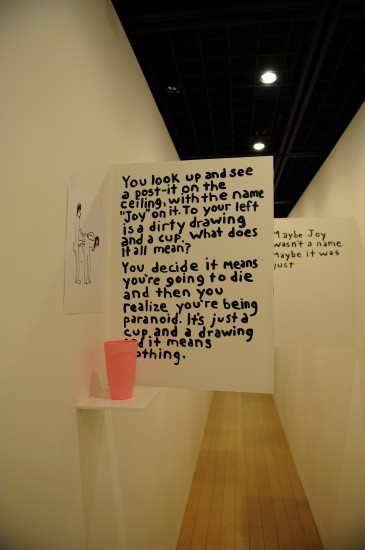 You look up and see
a post-it on the
ceiling, with the name
"Joy" on it. To your left
is a dirty drawing
and a cup. What does
it all mean?
You decide it means
you're going to die
and then you
realize you're being
paranoid. It's just a
cup and a drawing
and it means
nothing.
Maybe Joy
wasn't a name.
Maybe it was
just